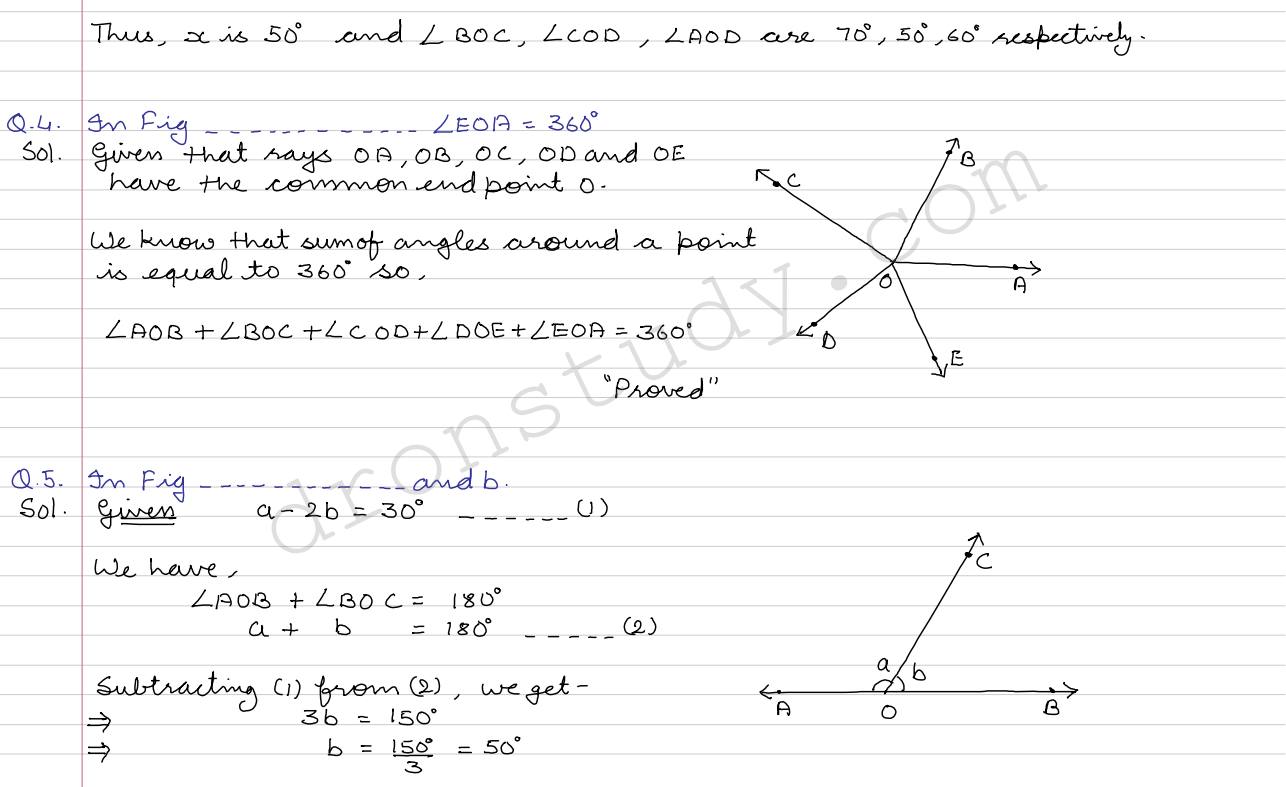 Thus, x is 50° and ∠BOC, ∠COD, ∠AOD are 70°, 50°, 60° respectively.
Q.4. In Fig ------------- ∠EOA = 360°
Sol. Given that rays OA, OB, OC, OD and OE
have the common end point O.
We know that sum of angles around a point
is equal to 360° so,
∠AOB + ∠BOC + ∠COD + ∠DOE + ∠EOA = 360°
"Proved"
B
C
O
A
D
E
Q.5. In Fig ------------- and b.
Sol. Given a - 2b = 30° ------ (1)
We have,
∠AOB + ∠BOC = 180°
a + b = 180° ----- (2)
Subtracting (1) from (2), we get -
⇒ 3b = 150°
⇒ b = 150°/3 = 50°
C
a b
A O B
dronstudy.com